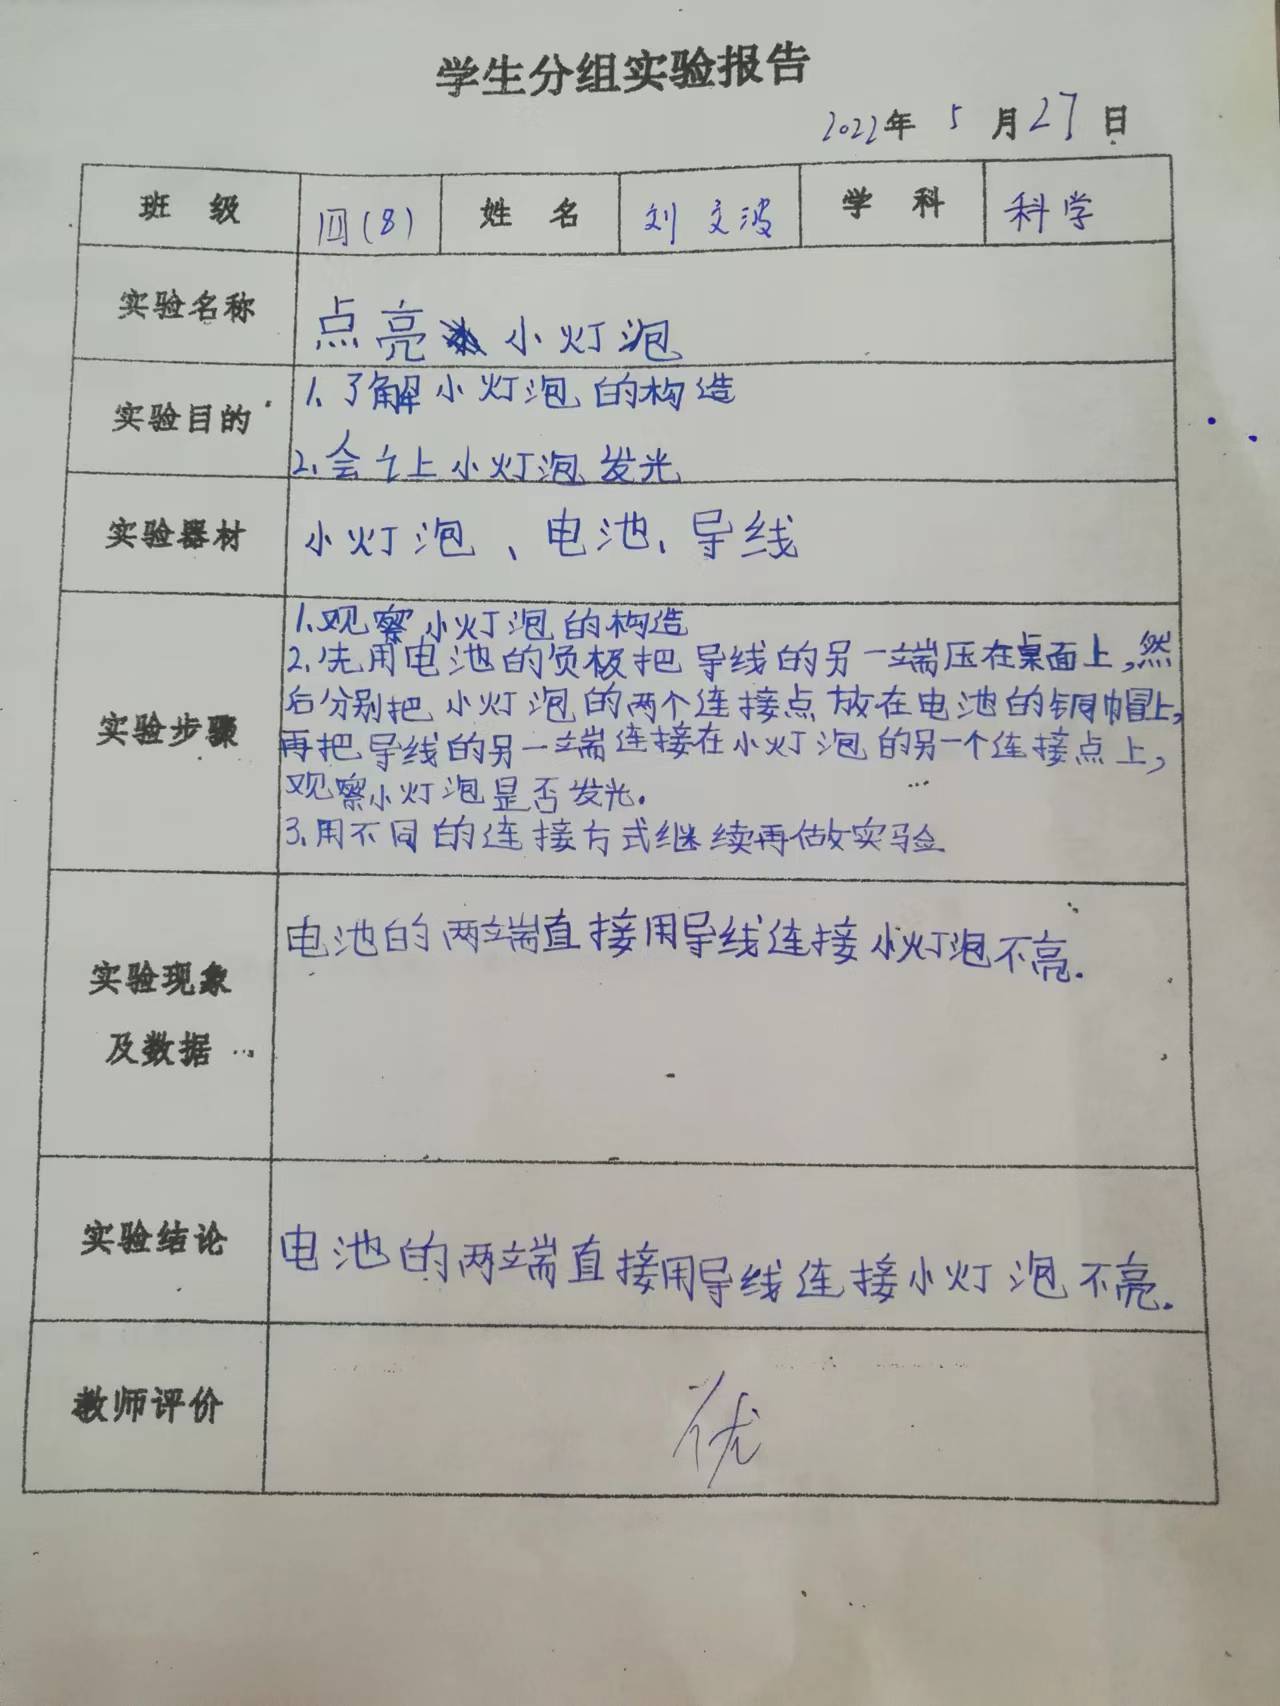 学生分组实验报告
2022年 5 月27日
班 级 四(8) 姓 名 刘文波 学 科 科学
实验名称 点亮小灯泡
实验目的 1.了解小灯泡的构造
2.会让小灯泡发光
实验器材 小灯泡、电池、导线
1.观察小灯泡的构造
2.先用电池的负极把导线的另一端压在桌面上,然
后分别把小灯泡的两个连接点放在电池的铜帽上,
实验步骤 再把导线的另一端连接在小灯泡的另一个连接点上,
观察小灯泡是否发光.
3.用不同的连接方式继续再做实验
电池的两端直接用导线连接小灯泡不亮.
实验现象
及数据
实验结论 电池的两端直接用导线连接小灯泡不亮.
教师评价 优